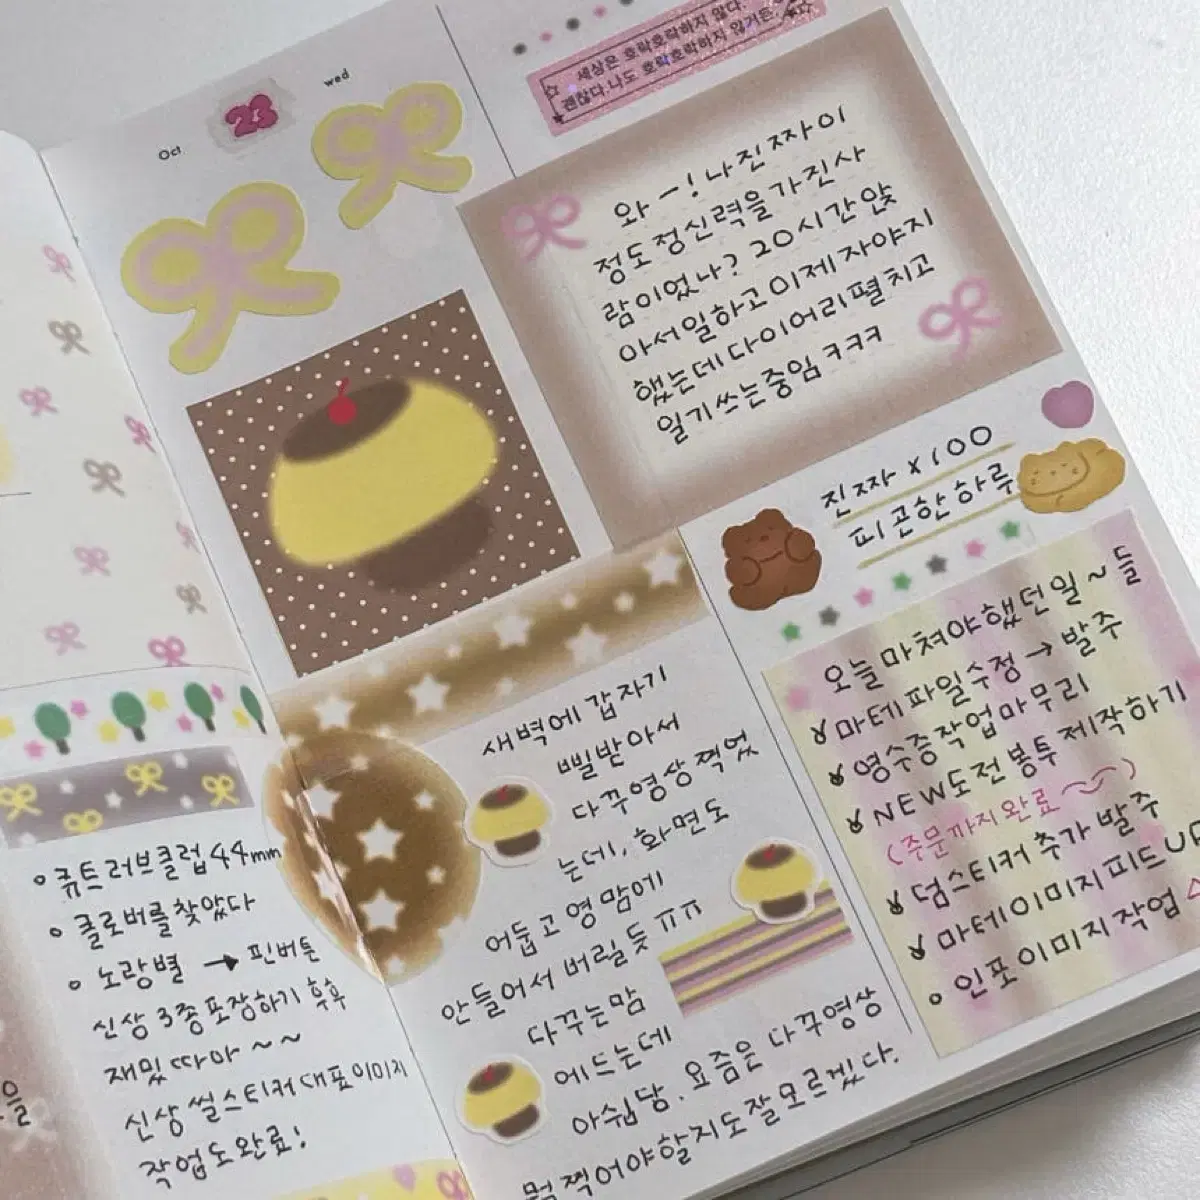 Oct
23
wed
세상은 호락호락하지 않다.
괜찮다.나도 호락호락하지 않거든.
와 - ! 나 진짜 이
정도 정신력을 가진 사
람이었나? 20시간 앉
아서 일하고 이제 자야지
했는데 다이어리 펼치고
일기쓰는중임 ㅋㅋㅋ
진짜 x100
피곤한 하루
오늘 마쳐야했던일~들
마테파일수정 → 발주
영수증작업마무리
NEW도전봉투 제작하기
(주문까지완료~)
덤스티커 추가 발주
마테이미지피드UP
인포이미지작업
새벽에 갑자기
삘받아서
다꾸영상 찍었
는데, 화면도
어둡고 영 맘에
안들어서 버릴듯 ㅠㅠ
다꾸는맘
에드는데
아쉽당. 요즘은 다꾸영상
뭘 찍어야할지도 잘 모르겠다.
큐트러브클럽44mm
클로버를찾았다
노랑별 → 핀버튼
신상 3종포장하기 후후
재밌따아~~
신상 씰스티커 대표이미지
작업도완료!